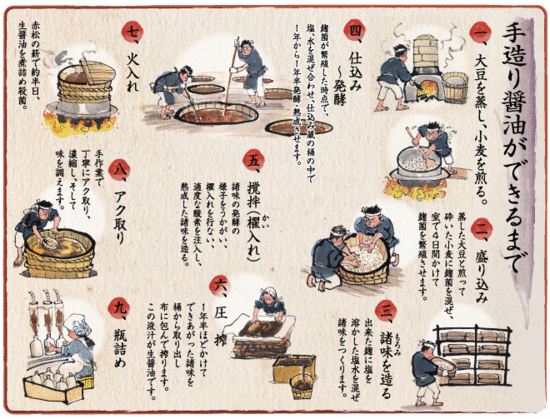 手造り醤油ができるまで
一、大豆を蒸し、小麦を煎る。
二、盛り込み
蒸した大豆と煎って
砕いた小麦に麹菌を混ぜ、
室で4日間かけて
麹菌を繁殖させます。
三、諸味を造る
もろみ
出来た麹に塩を
溶かした塩水を混ぜ
諸味をつくります。
四、仕込み
〜発酵
麹菌が繁殖した時点で、
塩、水を混ぜ合わせ、仕込み蔵の桶の中で
1年から1年半発酵・熟成させます。
五、撹拌(櫂入れ)
かい
諸味の発酵の
様子をうかがい、
櫂入れを行ない、
適度な酸素を注入し、
熟成した諸味を造る。
六、圧搾
1年半ほどかけて
できあがった諸味を
桶から取り出し
布に包んで搾ります。
この液汁が生醤油です。
七、火入れ
赤松の薪で約半日、
生醤油を煮詰め殺菌。
八、アク取り
手作業で
丁寧にアク取り、
濃縮し、そして
味を調えます。
九、瓶詰め